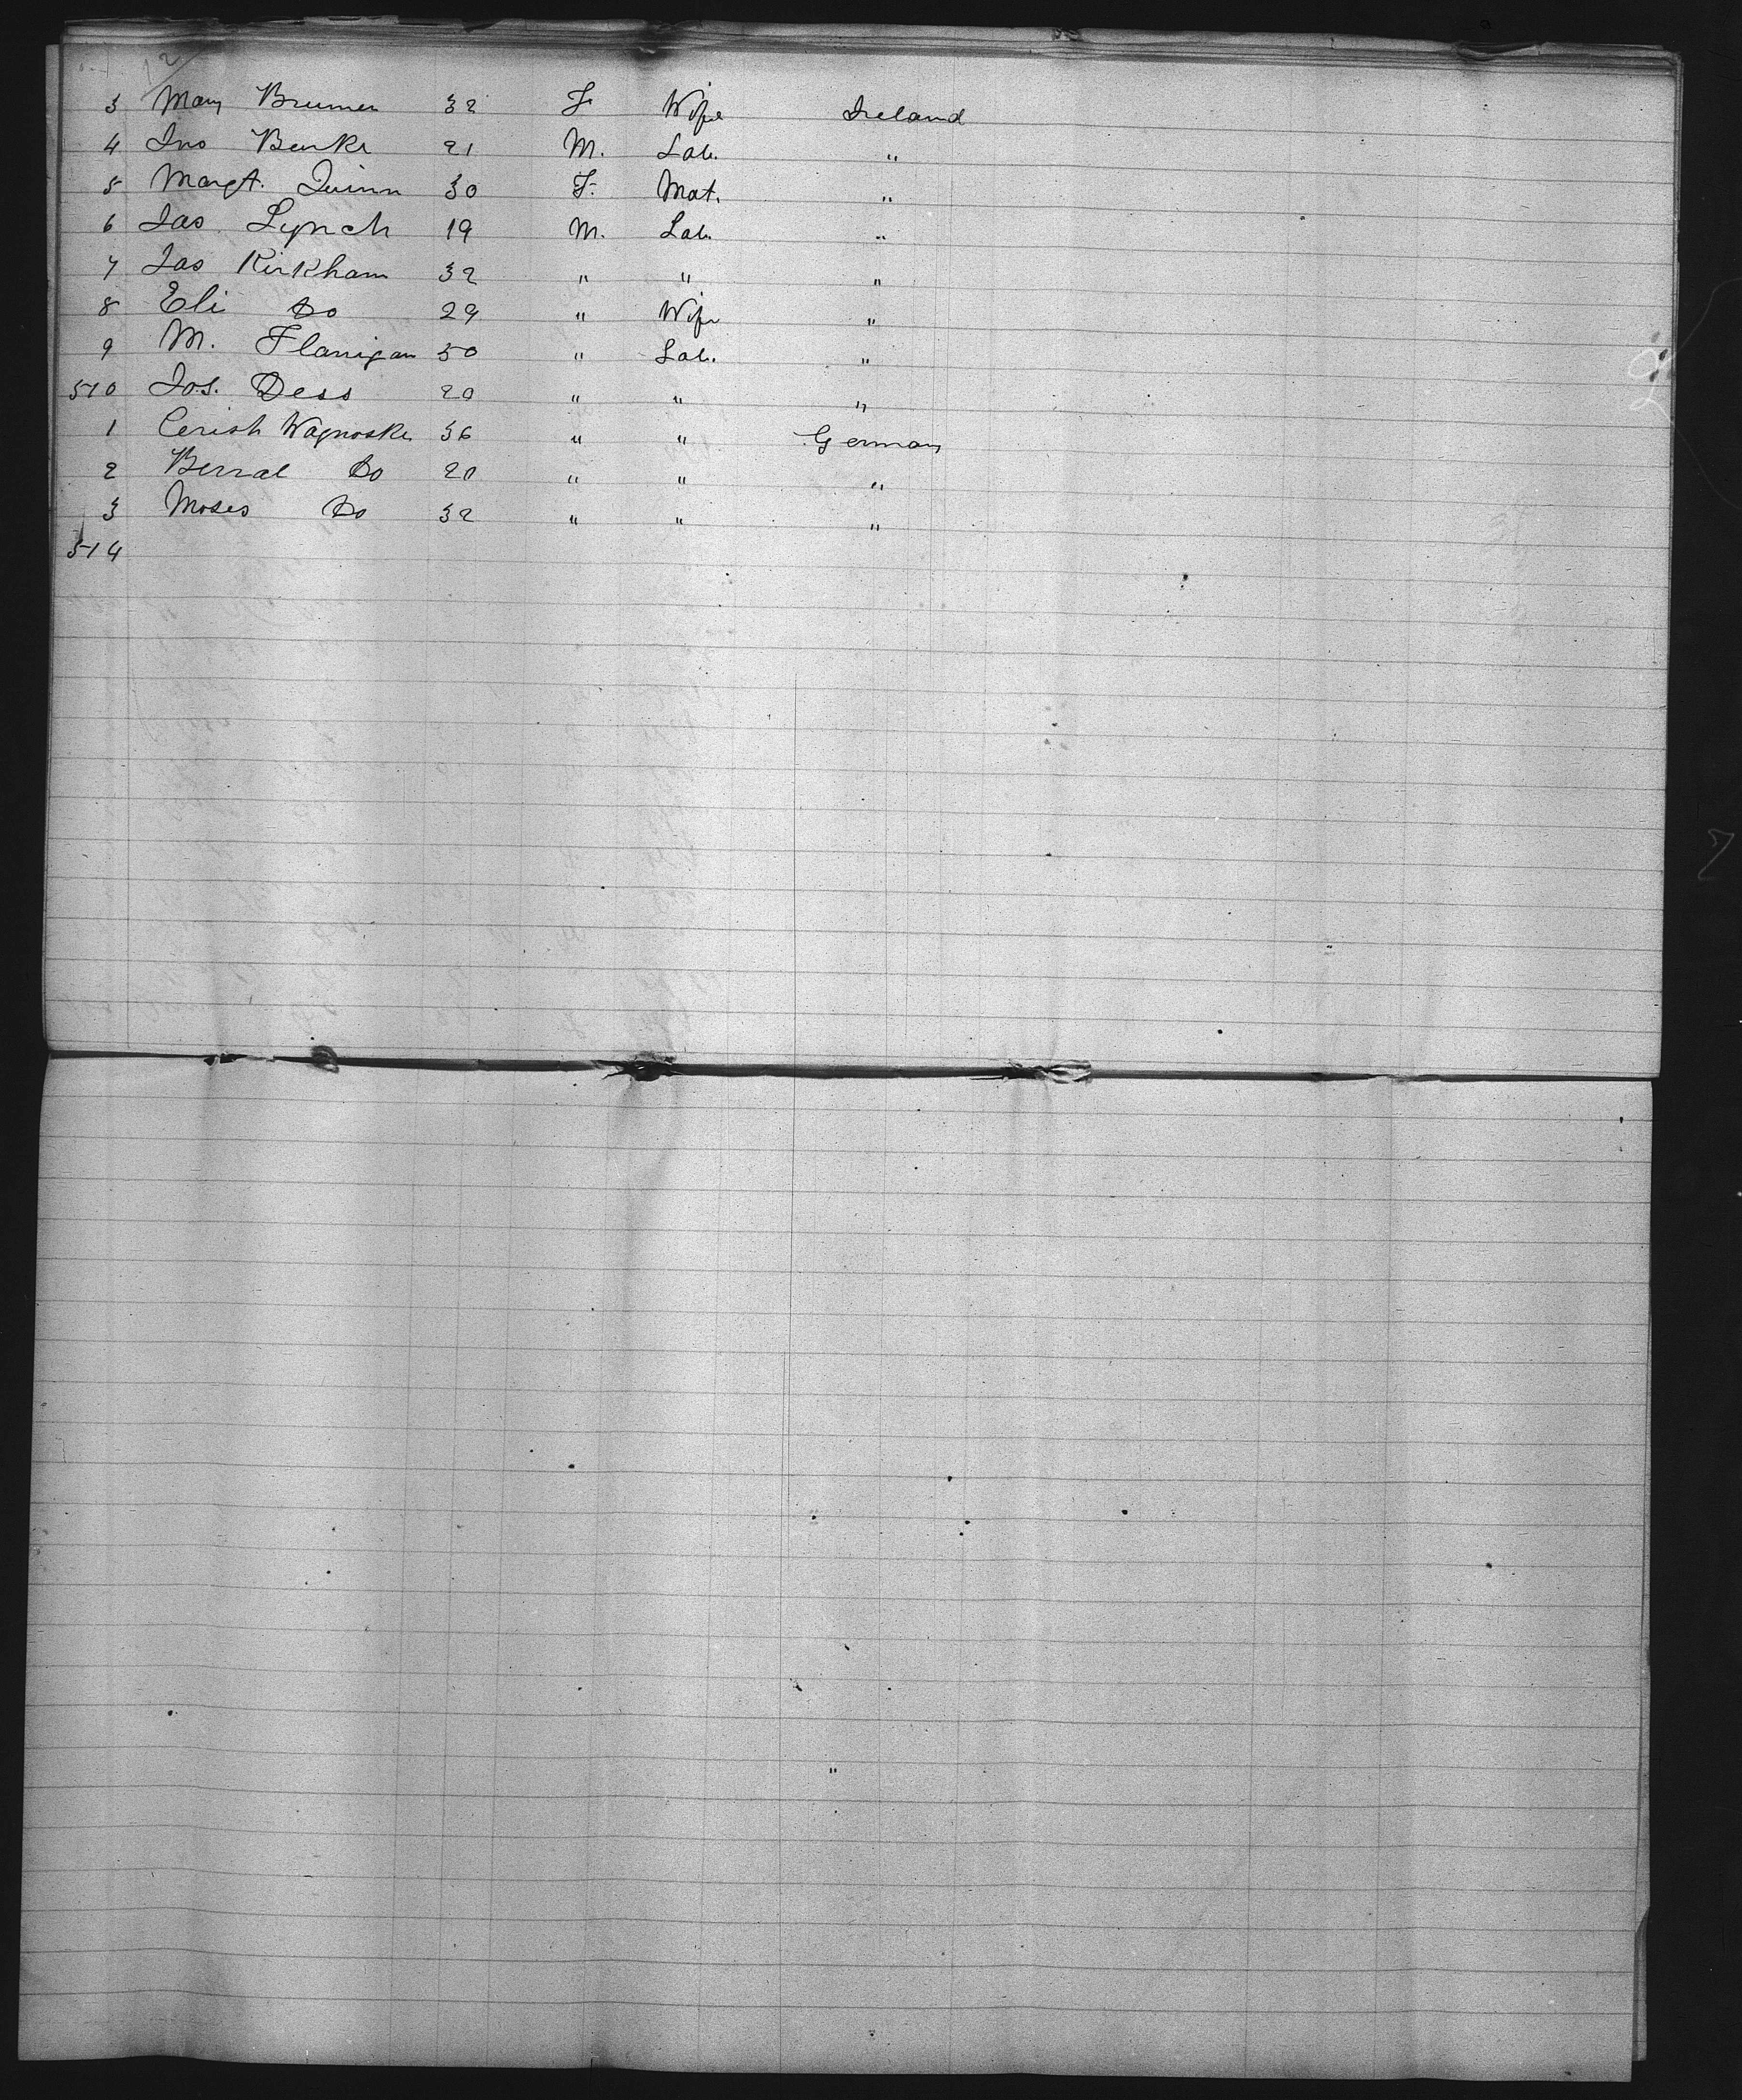 12
3 Mary Brumen 32 F Wife Ireland
4 Jno Burke 21 M. Lab. "
5 Margt. Quinn 30 F. Mat. "
6 Jas. Lynch 19 M. Lab. "
7 Jas Kirkham 32 " " "
8 Eli Do 29 " Wife "
9 M. Flanigan 50 " Lab. "
510 Jos. Dess 20 " " "
1 Cerish Wagnoske 36 " " Germany
2 Berral Do 20 " " "
3 Moses Do 32 " " "
514